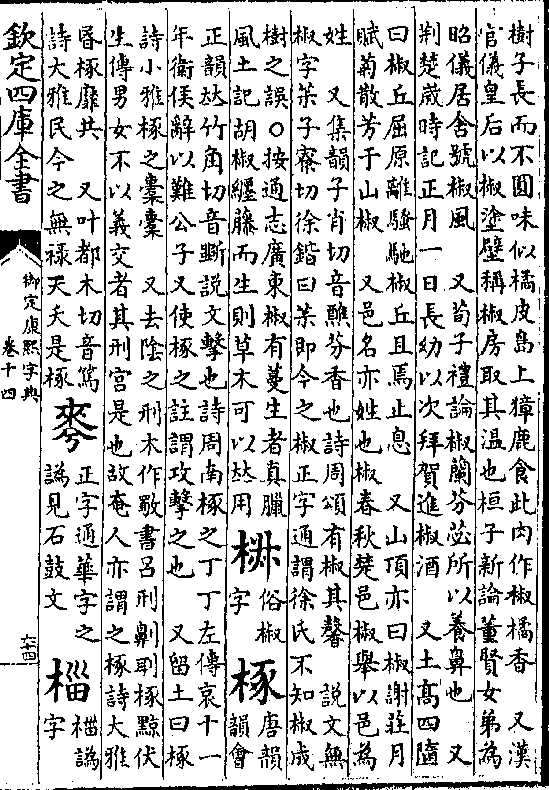 樹子長而不圓味似橘皮島上獐鹿食此肉作椒橘香 又漢
官儀皇后以椒塗壁稱椒房取其温也桓子新論董賢女弟為
昭儀居舍號椒風 又荀子禮論椒蘭芬苾所以養鼻也 又
荆楚歲時記正月一日長幼以次拜賀進椒酒 又土髙四隨
曰椒丘屈原離騷馳椒丘且焉止息 又山頂亦曰椒謝莊月
賦菊散芳于山椒 又邑名亦姓也椒春秋楚邑椒舉以邑為
姓 又集韻子肖切音醮芬香也詩周頌有椒其馨 說文無
椒字茮子寮切徐鍇曰茮即今之椒正字通謂徐氏不知椒成
樹之誤〇按通志廣東椒有蔓生者真臘
風土記胡椒纏藤而生則草木可以𠀤用
俗椒
字
椓
唐韻
韻會
正韻𠀤竹角切音斲說文擊也詩周南椓之丁丁左傳哀十一
年衛侯辭以難公子又使椓之註謂攻擊之也 又畱土曰椓
詩小雅椓之橐橐 又去陰之刑木作斀書呂刑劓刵椓黥伏
生傳男女不以義交者其刑宫是也故奄人亦謂之椓詩大雅
昬椓靡共 又叶都木切音篤
詩大雅民今之無禄天夭是椓
正字通華字之
譌見石鼓文
椔譌
字
欽定四庫全書
御定康熙字典
卷十四
六十四